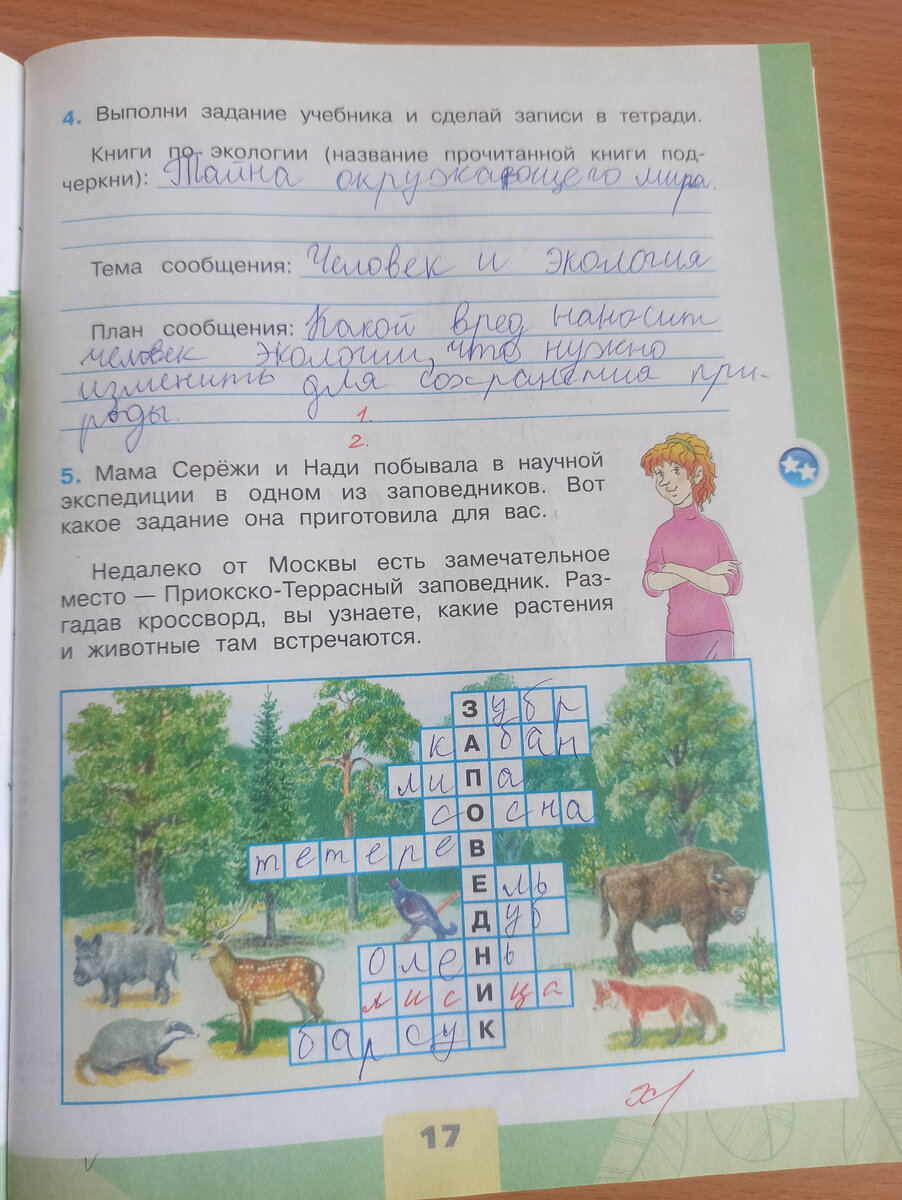 4. Выполни задание учебника и сделай записи в тетради.
Книги по экологии (название прочитанной книги под-
черкни): Тайна окружающего мира.
Тема сообщения: Человек и экология
План сообщения: Какой вред наносит
человек экологии, что нужно
изменить для сохранения при-
роды.
1.
2.
5. Мама Серёжи и Нади побывала в научной
экспедиции в одном из заповедников. Вот
какое задание она приготовила для вас.
Недалеко от Москвы есть замечательное
место — Приокско-Террасный заповедник. Раз-
гадав кроссворд, вы узнаете, какие растения
и животные там встречаются.
Зубр
кАбан
лиПа
сОсна
тетереВ
Ель
Дуб
олеНь
лисИца
барсуК
17